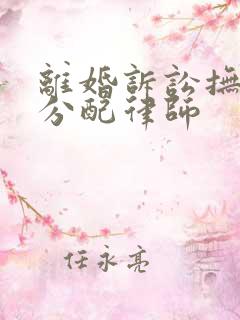 離婚訴訟撫
分配律師
任永亮